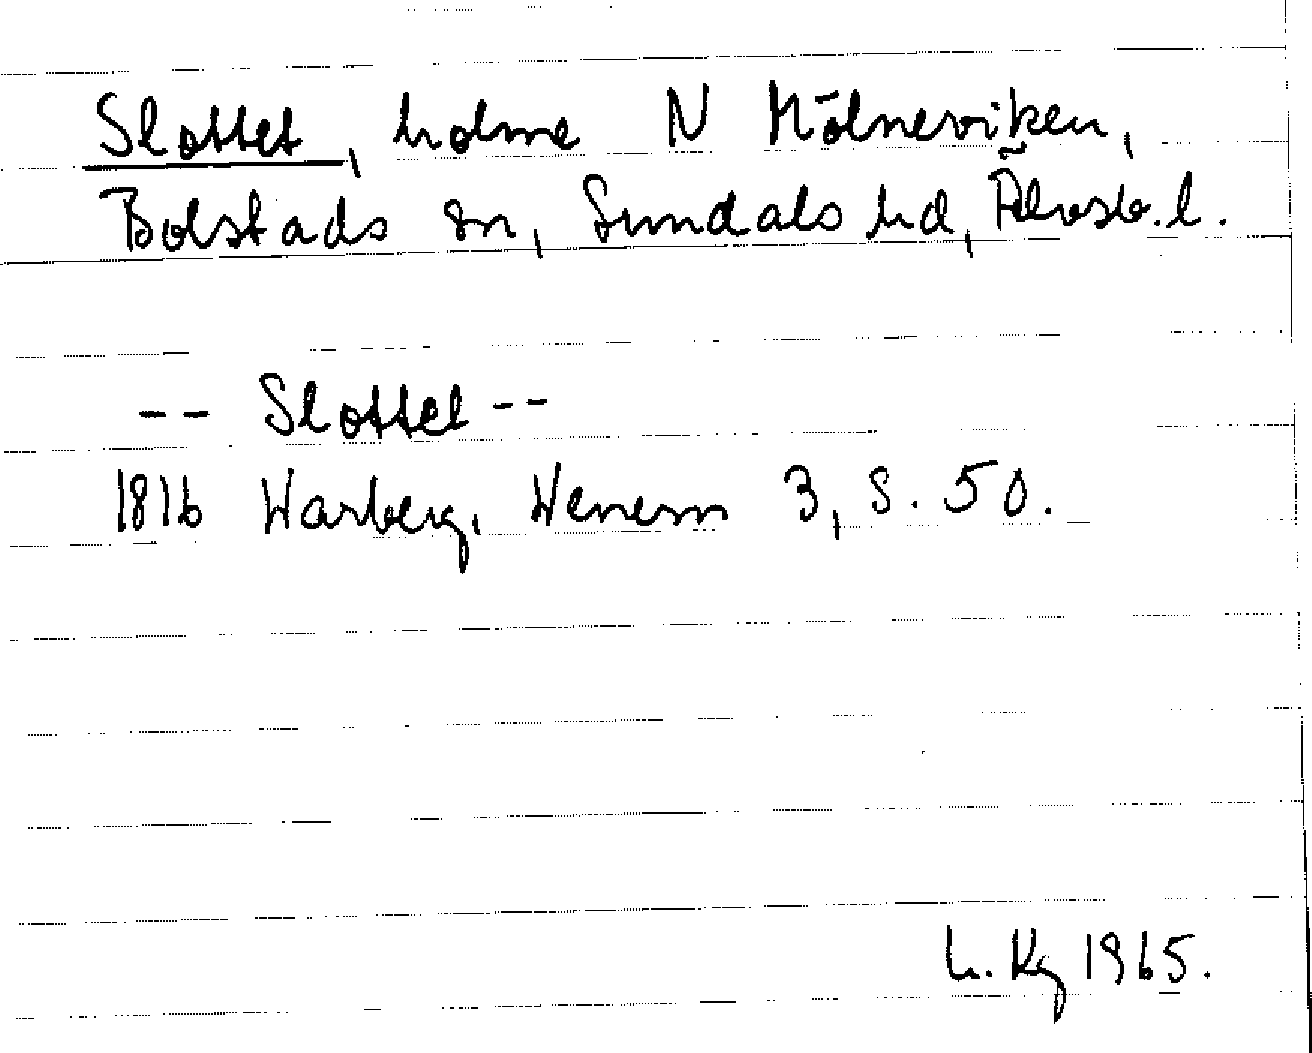 Slottet, holme N Mölneviken,
Bolstads sn, Sundals hd, Älvsb. l.
-- Slottet --
1816 Warberg, Wenern 3, s. 50.
L. Kg 1965.